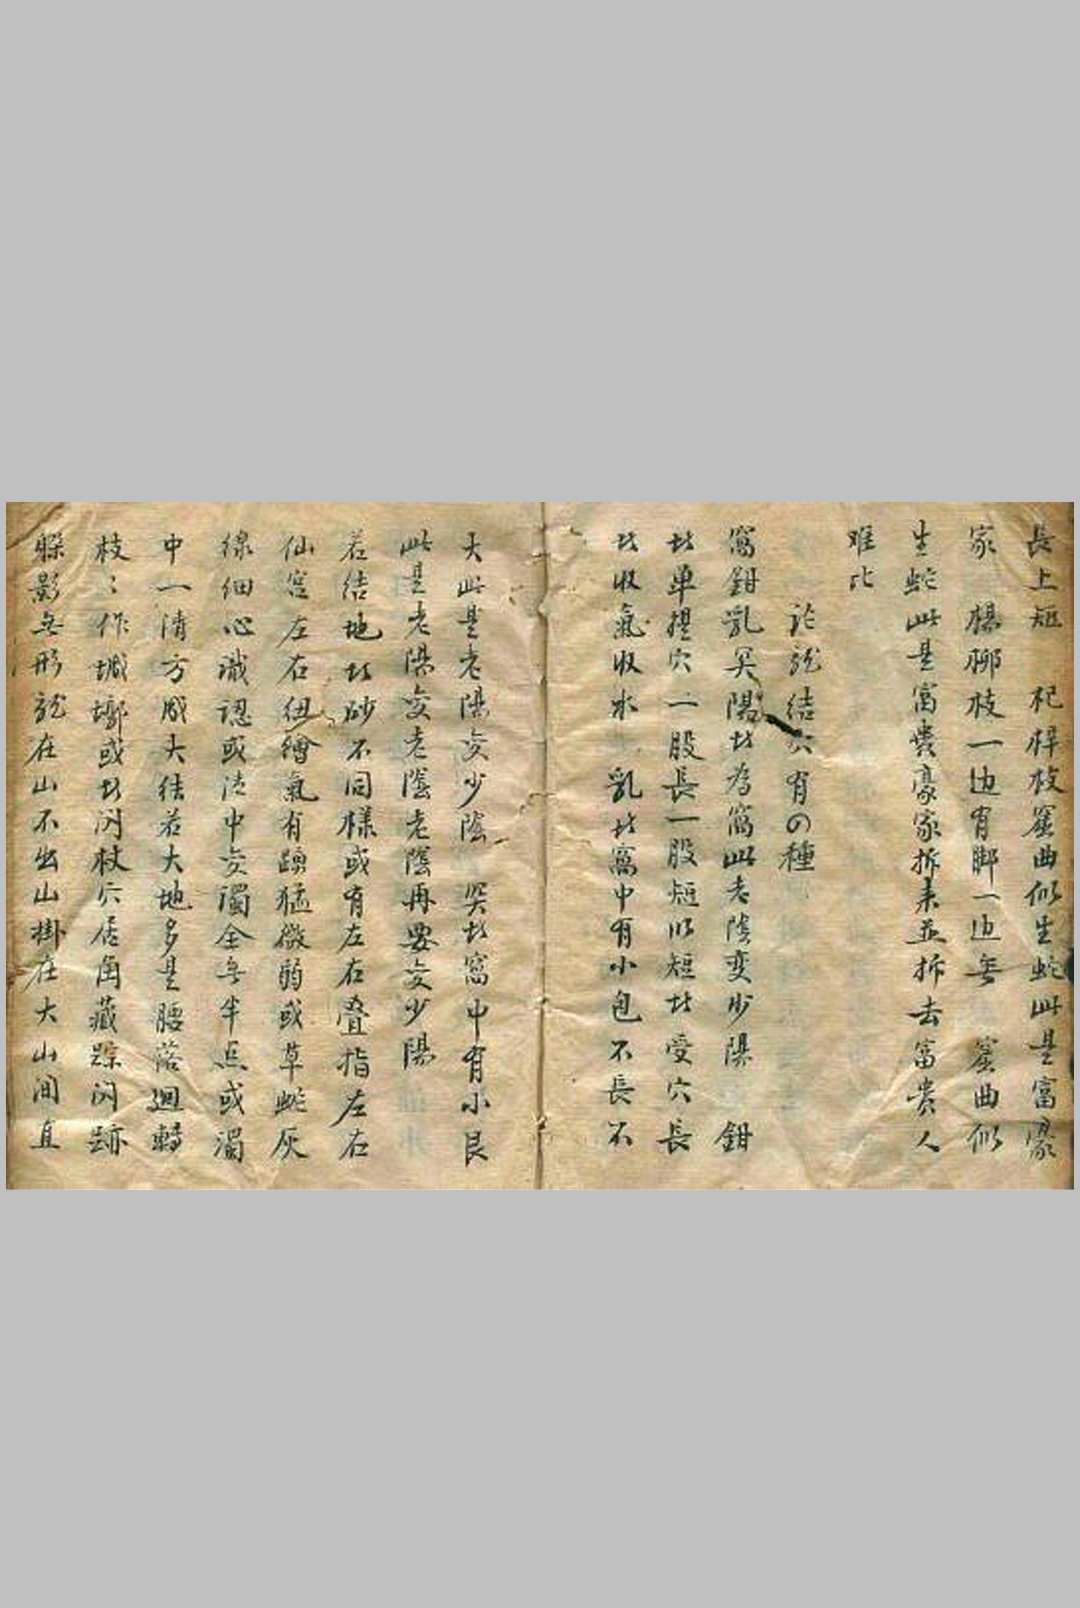 長上短 杞梓枝窟曲似生蛇此是富豪
家 楊柳枝一边有脚一边無 窟曲似
生蛇此是富貴豪家拆来並拆去富貴人
难比
論龍結穴有の種
窩鉗乳 陽 為窩此老陰变少陽 鉗
单提穴一股長一股短以短 受穴長
收氣收水 乳 窩中有小包不長不
大此是老陽交少陰 突 窩中有小
此是老陽交老陰老陰再要交少陽
若結地 砂不同樣或有左右叠指左右
仙宫左右 氣有 猛微弱或草蛇灰
線細心識認或清中交濁全無半点或濁
中一清方成大結若大地多是腰落廻轉
枝〻作城墎或 閃杖穴居角藏踪闪跡
躲影無形龍在山不出山掛在大山间直